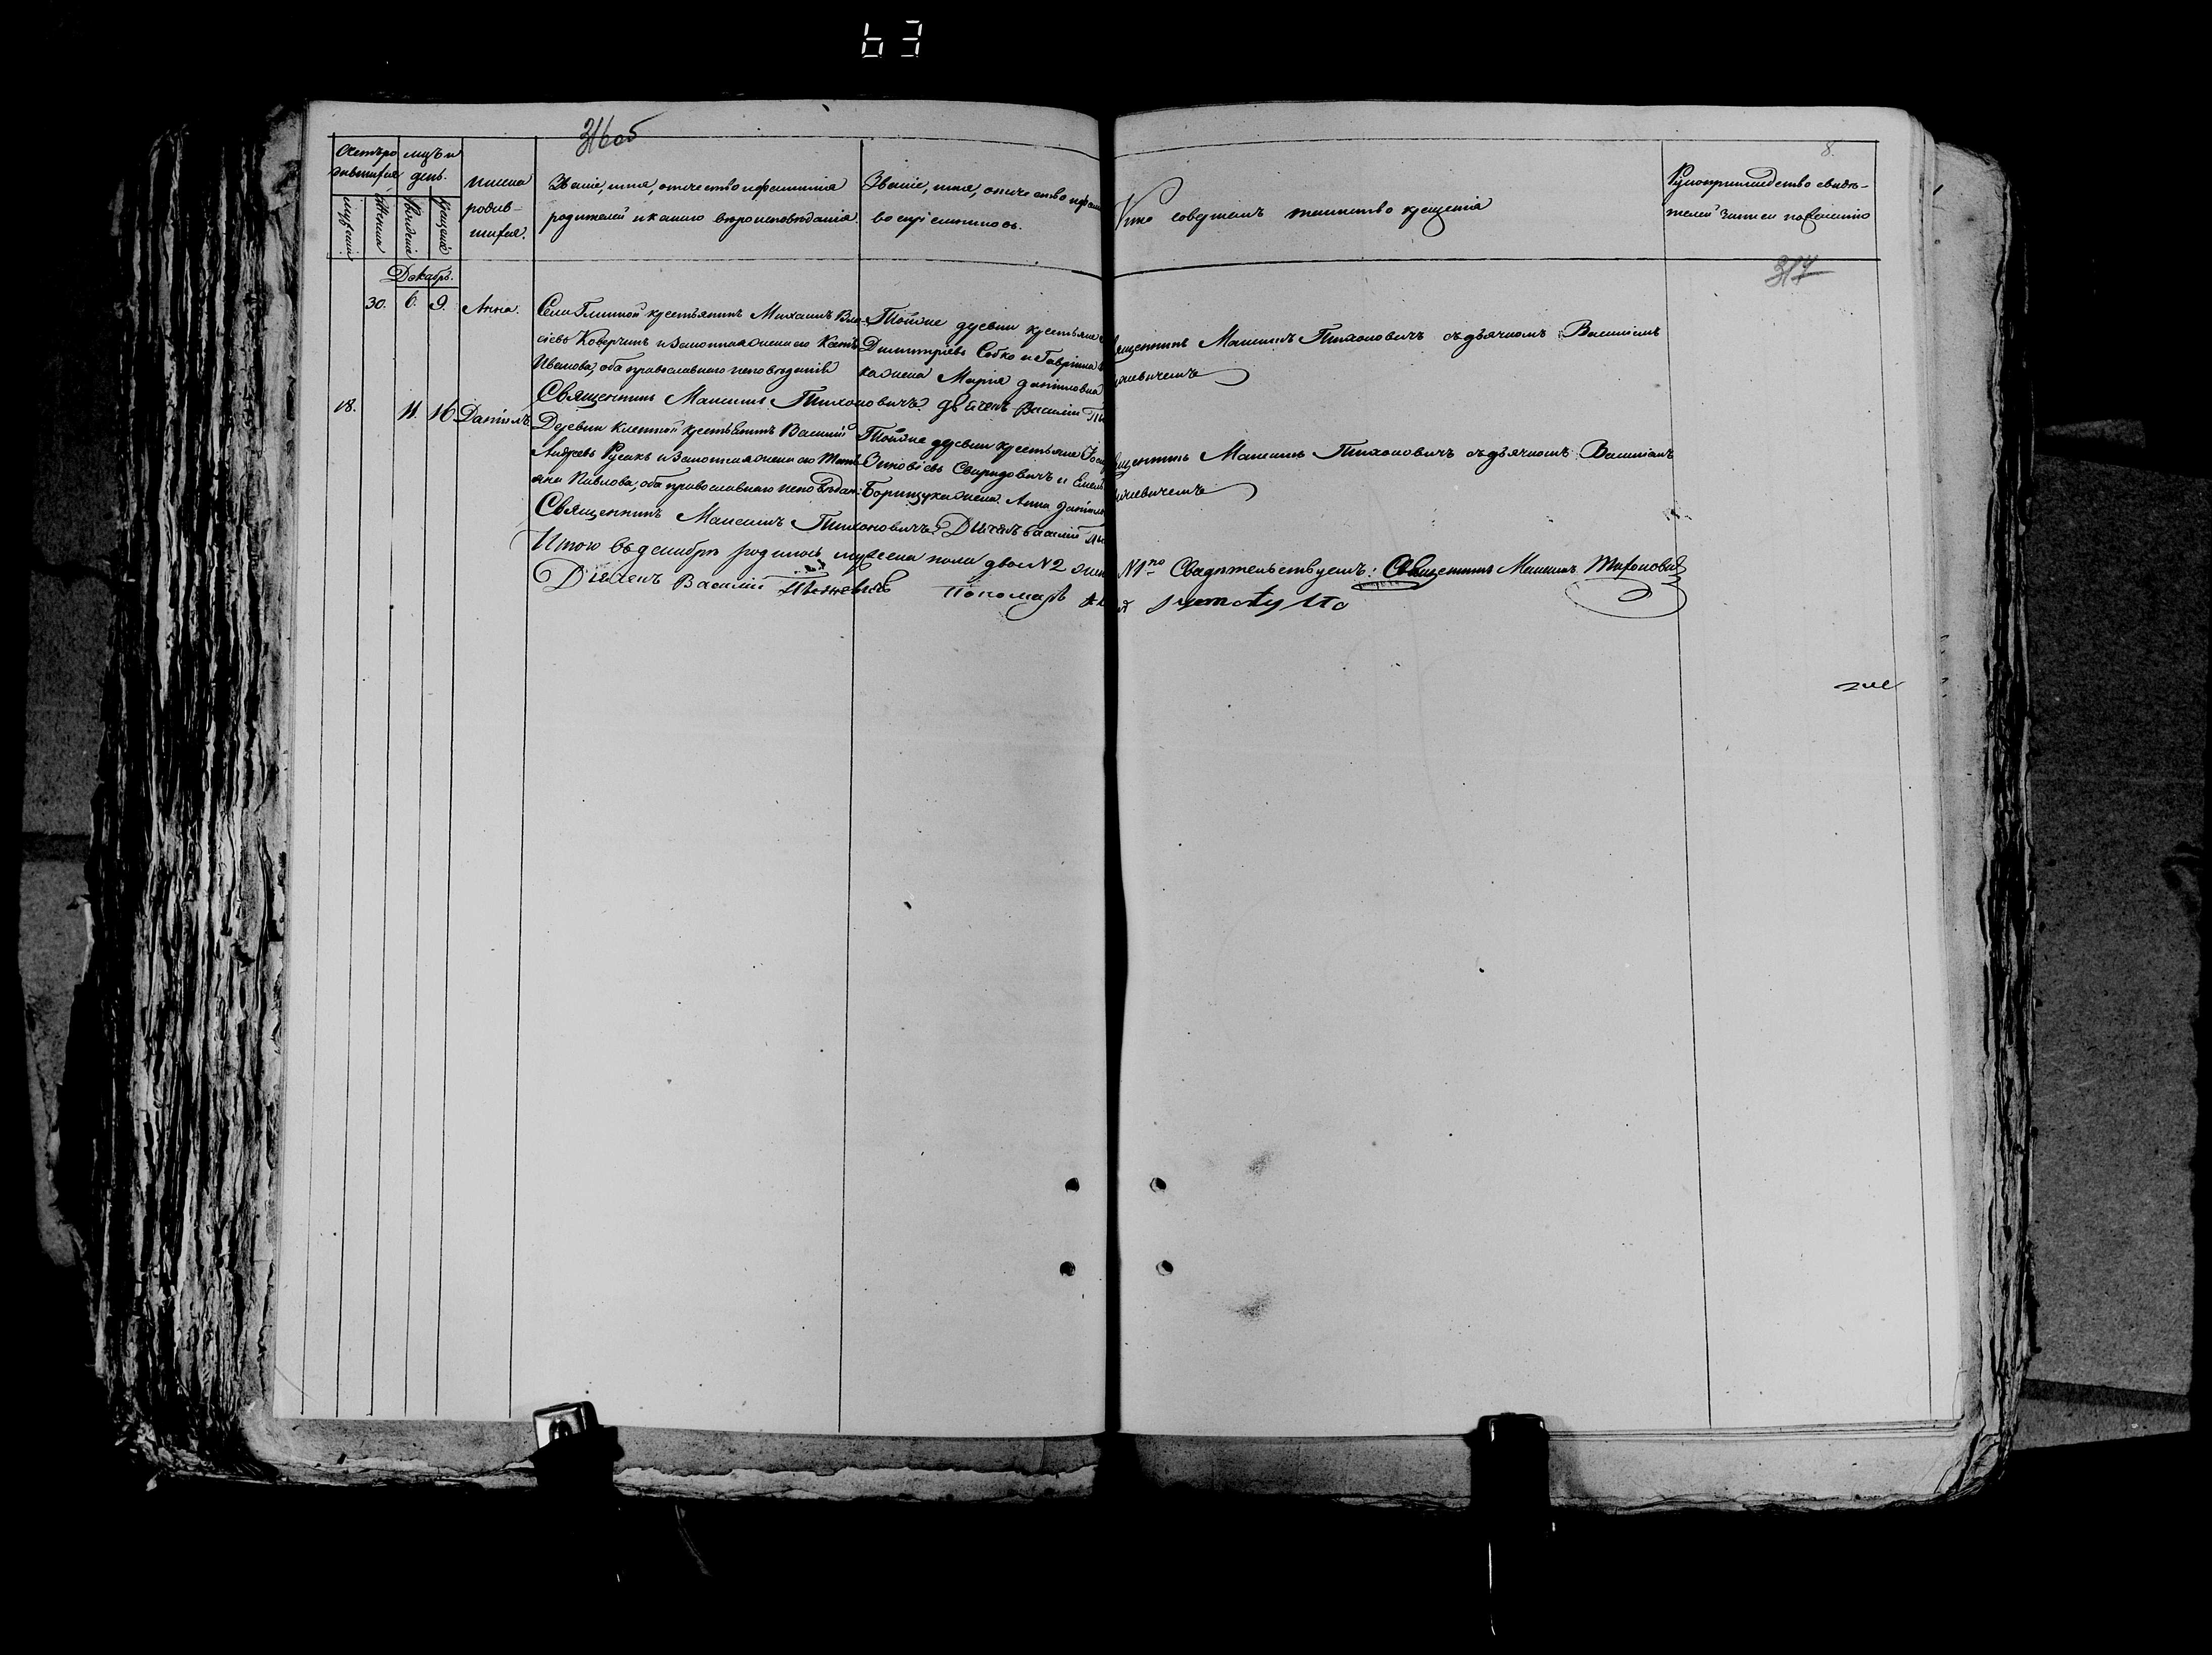 63
316 об
8.
Счетъ ро
дившихся
мцъ и
день.
мужеска
Женска
Рожденія
Крещенія
имена
родив-
шихся.
Званіе, имя, отчество и фамилія
родителей и какого вѣроисповѣданія.
Званіе, имя, отчество и фами
воспріемниковъ.
Кто совершалъ таинство крещенія
Рукоприкладство свидѣ-
телей записи по желанію
317
Декабрь.
30. 6. 9. Анна.
Села Глинной крестьянинъ Михаилъ Вла-
сіевъ Коверчикъ и Законная жена его Кат
Иванова, оба православнаго исповѣданія
Тойже деревни крестьяне
Димитріевъ Собко и Гавріила
жена Марія Даніиловна
Священникъ Максимъ Тихоновичъ съ дьячкомъ Василіемъ
Священникъ Максимъ Тихоновичъ. Дьячекъ Василій
18. 11. 16 Даніилъ
Деревни Клетной крестьянинъ Василий
Андреевъ Русакъ и Законная жена его Тать
яна Павлова, оба православнаго исповѣдан:
Тойже деревни крестьяне
Зиновіевъ Свиридовичъ и Емел
Борищука жена Анна Даніил
Священникъ Максимъ Тихоновичъ съ дьячкомъ Василіемъ
Священникъ Максимъ Тихоновичъ. Дьячекъ Василій
Итого въ декабрѣ родилось мужеска пола двое N 2 жен N 1но Свидѣтельствуемъ: Священникъ Максимъ Тихоновичъ
Дьячекъ Василій Пономарь